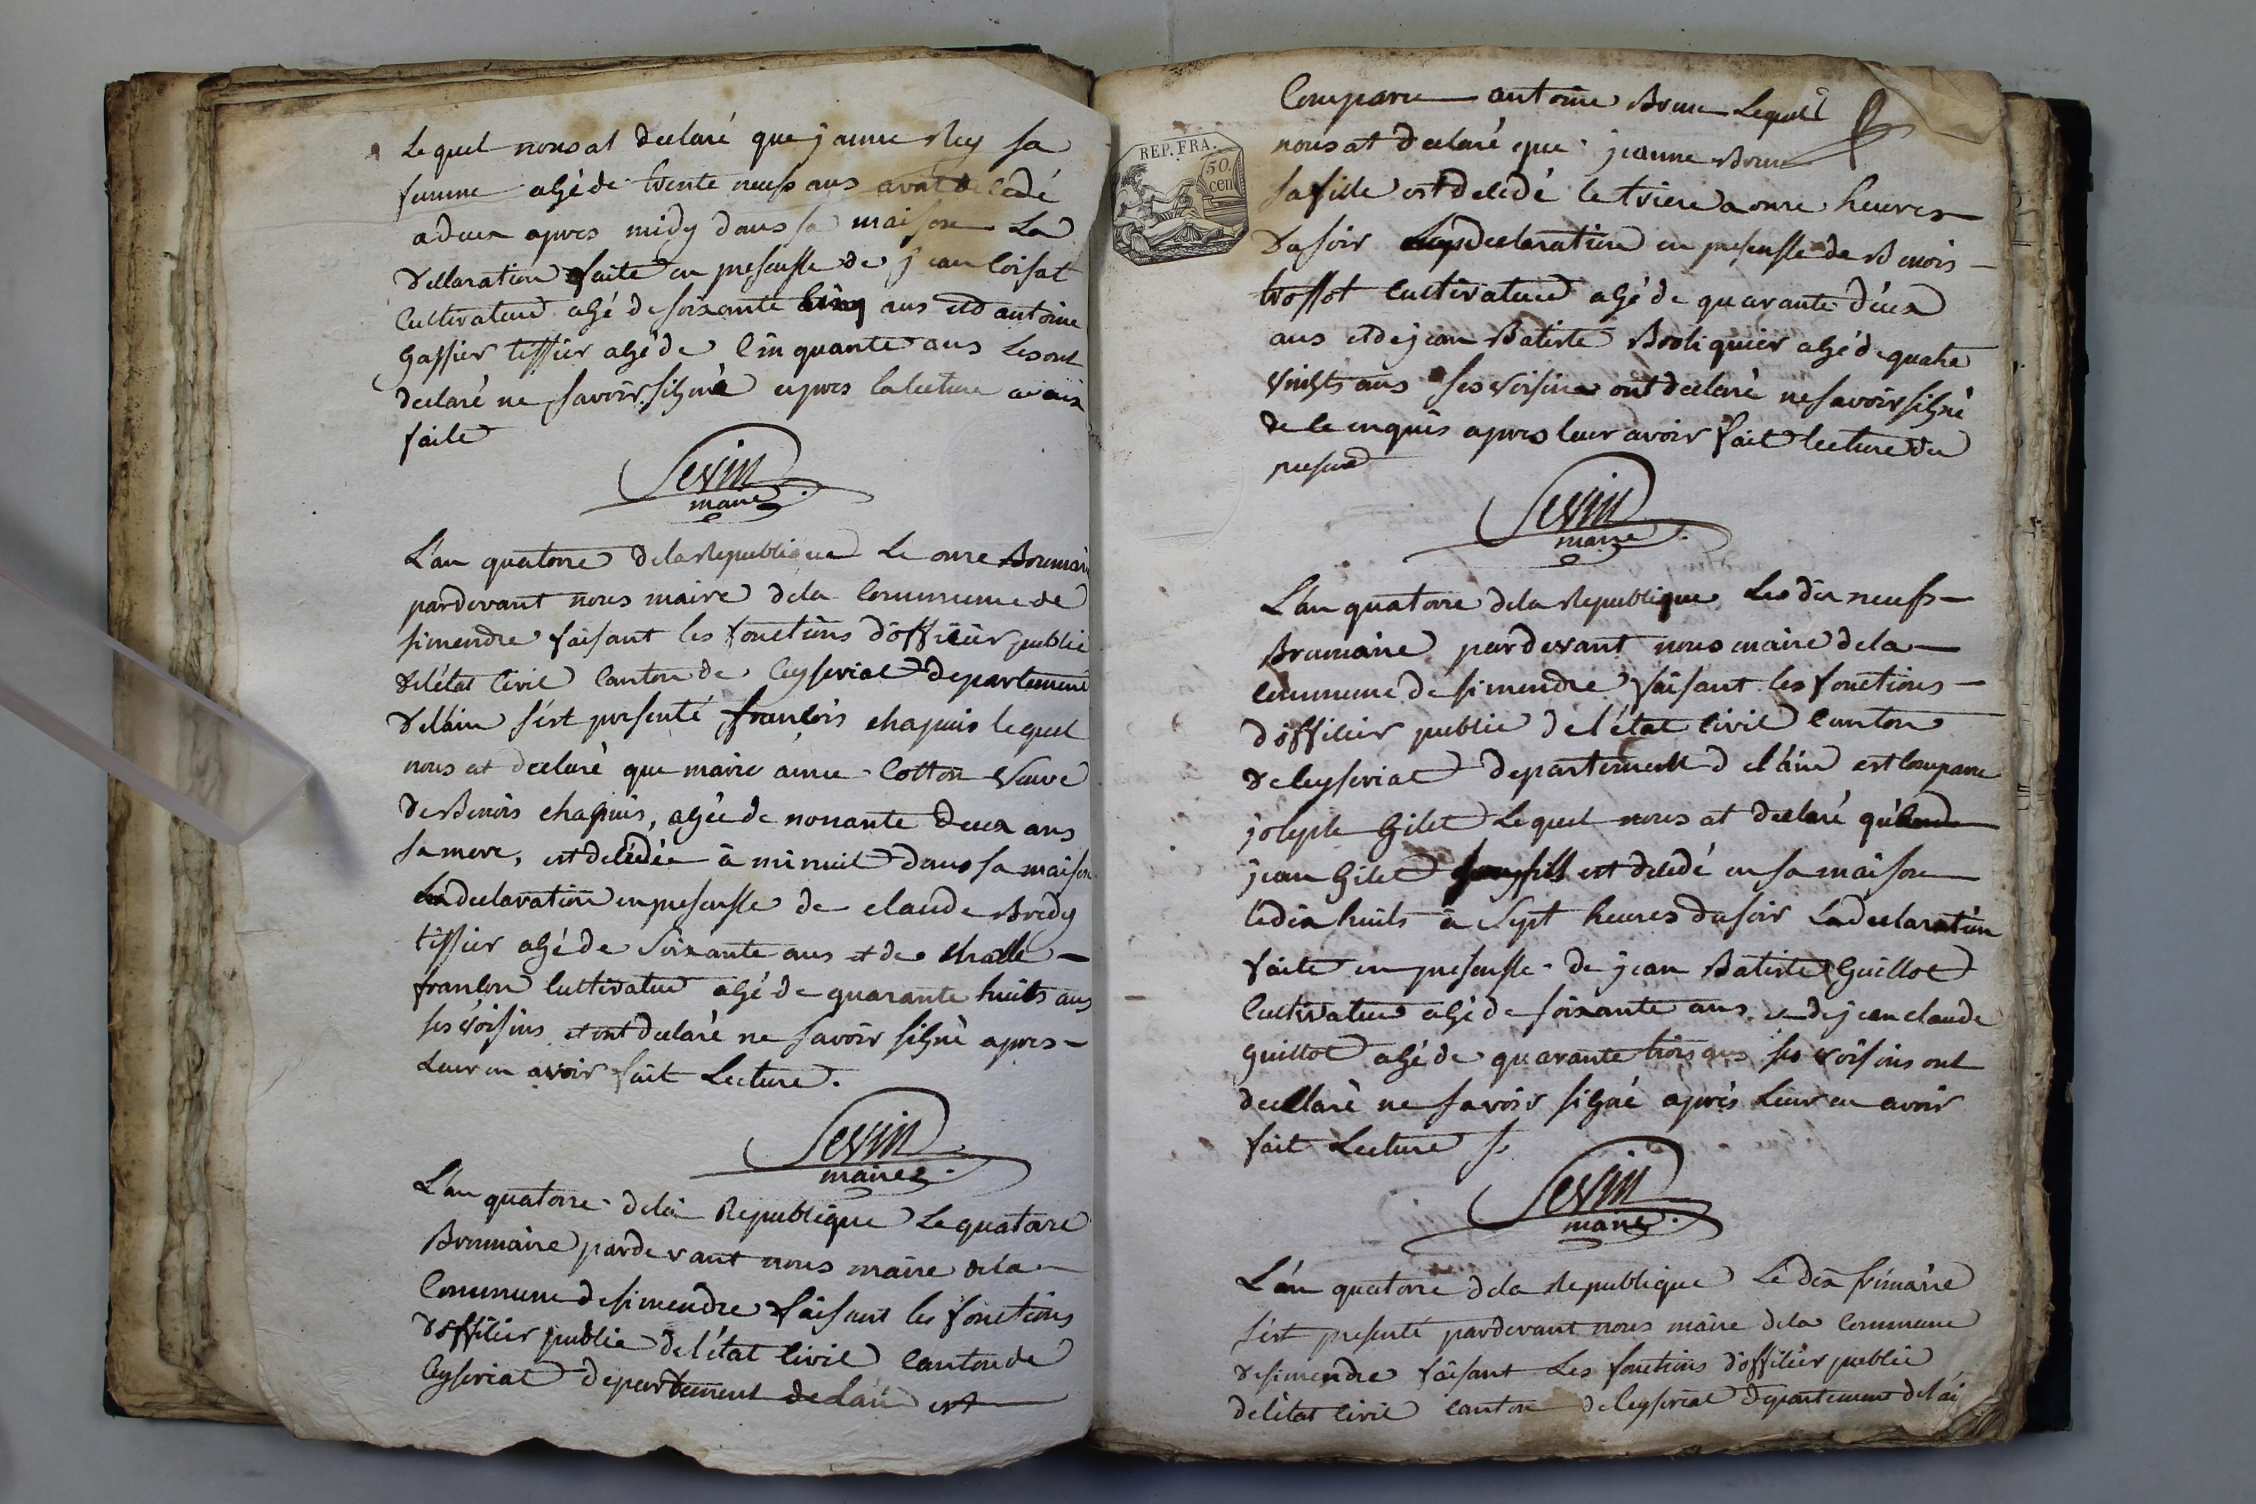 Lequel nous at declaré que jeanne Rey sa
femme agé de trente neufs ans avat decedé
a deux apres midy dans sa maison La
declaration faite en presensse de jean Coisat
Cultivateur agé de soixante cinq ans et d antoine
gassier tissier agé de Cinquante ans Les ont
declaré ne savoir signé apres la lecture a eux
faite
Sevin
maire
L'an quatorre de la Republique Le onre Brumair
pardevant nous maire dela Commune de
simendre faisant les fonctions d'officier public
de l'état Civil Canton de Ceyseriat departement
de l'ain s'est presenté françois chapuis lequel
nous at declaré que marie anne Cotton veuve
de Benois chapuis, agée de nonante deux ans
sa mere, est decédée à minuit dans sa maison
La declaration en presensse de claude Bredy
tissier agé de soixante ans et de
françon Cultivateur agé de quarante huits ans
ses voisins et ont declaré ne savoir signé apres
Leur en avoir fait Lecture.
Sevin
maire
L'an quatorre de la Republique Le quatorre
Brumaire pardevant nous maire dela
Commune de simendre faisant les fonctions
d'officier public de l'état Civil Canton de
Ceyseriat departement de l'ain est
Comparu antoine Brun Lequel
nous at declaré que jeanne Brun
REP. FRA.
50
cen
sa fille est decedé le triere a onre heures
du soir La declaration en presensse de Benois
trossot Cultivateur agé de quarante deux
ans et de jean Batiste Broliquier agé de quatre
vingts ans ses voisins ont declaré ne savoir signé
de ce enquis apres leur avoir fait lecture du
present
Sevin
maire
L'an quatorre de la Republique Les dix neufs
Brumaire pardevant nous maire dela
Commune de simendre faisant les fonctions
d'officier public de l'état Civil Canton
de Ceyseriat departement de l'ain est Comparu
joseph Gilet Lequel nous at declaré
jean Gilet son fils est decedé en sa maison
le dix huits à sept heures du soir La declaration
faite en presensse de jean Batiste Guillot
Cultivateur agé de soixante ans et de jean claude
Guillot agé de quarante trois ans ses voisins ont
decllaré ne savoir signé après Leur en avoir
fait Lecture
Sevin
maire
L'an quatorre dela Republique Le dix frimaire
s'est presenté pardevant nous maire dela Commune
de simendre faisant Les fonctions d'officier public
de l'état Civil Canton de Ceyseriat departement de l'ai